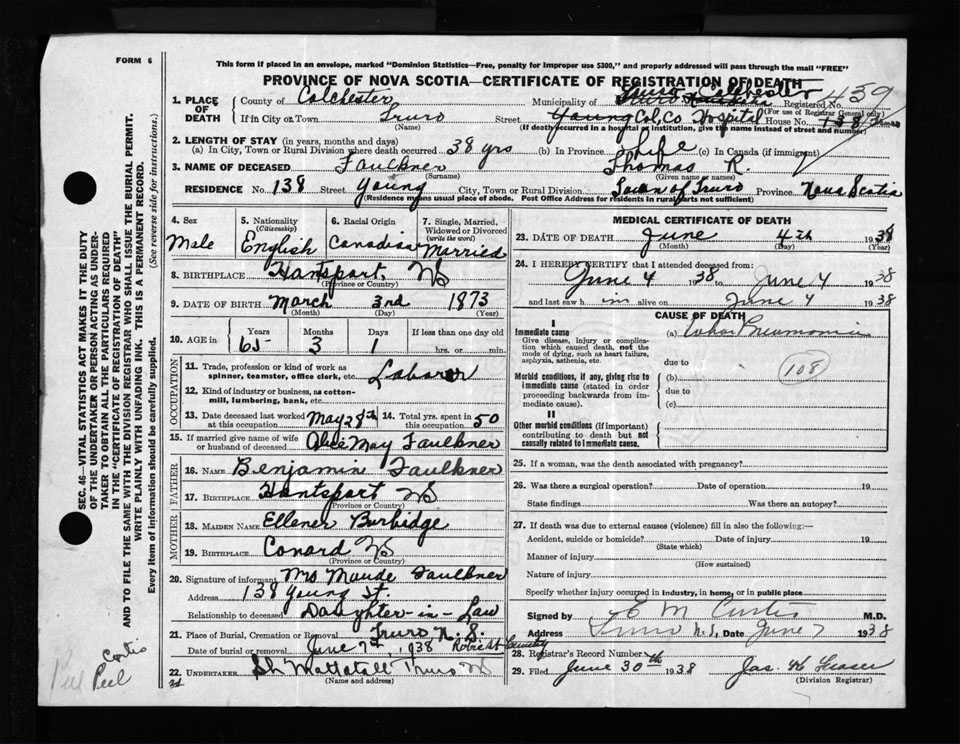 FORM 6
This form if placed in an envelope, marked "Dominion Statistics—Free, penalty for improper use $300," and properly addressed will pass through the mail "FREE"
PROVINCE OF NOVA SCOTIA—CERTIFICATE OF REGISTRATION OF DEATH
1. PLACE OF DEATH County of Colchester Municipality of Truro Colchester Registered No. 439
(For use of Registrar General only)
If in City or Town Truro Street Young Col. Co Hospital House No. 138
(Name) (If death occurred in a hospital or institution, give the name instead of street and number)
2. LENGTH OF STAY (in years, months and days)
(a) In City, Town or Rural Division where death occurred 38 yrs (b) In Province Life (c) In Canada (if immigrant)
3. NAME OF DECEASED Faulkner Thomas R.
(Surname) (Given name or names)
RESIDENCE No. 138 Street Young City, Town or Rural Division Town of Truro Province Nova Scotia
(Residence means usual place of abode. Post Office Address for residents in rural parts not sufficient)
4. Sex Male
5. Nationality (Citizenship) English
6. Racial Origin Canadian
7. Single, Married, Widowed or Divorced (write the word) Married
8. BIRTHPLACE Hantsport, NS
(Province or Country)
9. DATE OF BIRTH March 3rd 1873
(Month) (Day) (Year)
10. AGE in Years 65 Months 3 Days 1 If less than one day old
hrs. or min.
OCCUPATION
11. Trade, profession or kind of work as spinner, teamster, office clerk, etc. Laborer
12. Kind of industry or business, as cotton-mill, lumbering, bank, etc.
13. Date deceased last worked at this occupation May 28th 14. Total yrs. spent in this occupation 50
15. If married give name of wife or husband of deceased Alice May Faulkner
FATHER
16. NAME Benjamin Faulkner
17. BIRTHPLACE Hantsport NS
(Province or Country)
MOTHER
18. MAIDEN NAME Ellener Burbidge
19. BIRTHPLACE Conard NS
(Province or Country)
20. Signature of informant Mrs Maude Faulkner
Address 138 Young St.
Relationship to deceased Daughter-in-Law
21. Place of Burial, Cremation or Removal Truro N.S.
Date of burial or removal June 7th, 1938 Robie St Cemetery
22. UNDERTAKER Mattatall Truro, NS
(Name and address)
MEDICAL CERTIFICATE OF DEATH
23. DATE OF DEATH June 4th 1938
(Month) (Day) (Year)
24. I HEREBY CERTIFY that I attended deceased from:
June 4 1938 to June 4 1938
and last saw h im alive on June 4 1938
CAUSE OF DEATH
I
Immediate cause (a) Lobar Pneumonia
Give disease, injury or complication which caused death, not the mode of dying, such as heart failure, asphyxia, asthenia, etc.
due to
108
Morbid conditions, if any, giving rise to immediate cause (stated in order proceeding backwards from immediate cause). (b)
due to
(c)
II
Other morbid conditions (if important) contributing to death but not causally related to immediate cause.
25. If a woman, was the death associated with pregnancy?
26. Was there a surgical operation? Date of operation 19
State findings Was there an autopsy?
27. If death was due to external causes (violence) fill in also the following:—
Accident, suicide or homicide? Date of injury 19
(State which)
Manner of injury
(How sustained)
Nature of injury
Specify whether injury occurred in industry, in home, or in public place
Signed by E M Curtis M.D.
Address Truro N.S. Date June 7 1938
28. Registrar's Record Number
29. Filed June 30th 1938 Jas. W Fraser
(Division Registrar)
SEC. 46—VITAL STATISTICS ACT MAKES IT THE DUTY
OF THE UNDERTAKER OR PERSON ACTING AS UNDER-
TAKER TO OBTAIN ALL THE PARTICULARS REQUIRED
IN THE "CERTIFICATE OF REGISTRATION OF DEATH"
AND TO FILE THE SAME WITH THE DIVISION REGISTRAR WHO SHALL ISSUE THE BURIAL PERMIT.
WRITE PLAINLY WITH UNFADING INK. THIS IS A PERMANENT RECORD.
Every item of information should be carefully supplied. (See reverse side for instructions.)
Curtis
Peel Peel